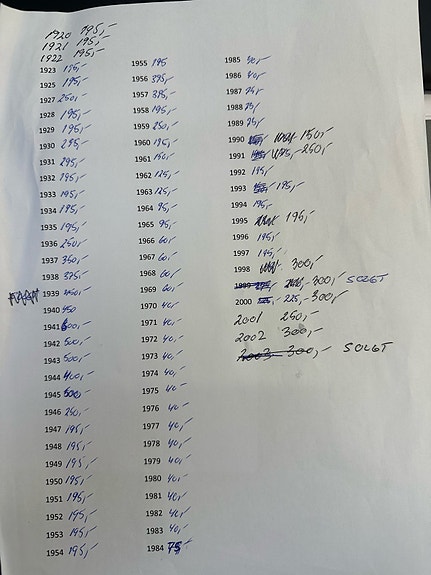 1920 195,-
1921 195,-
1922 195,-
1923 195,-
1925 195,-
1927 250,-
1928 195,-
1929 195,-
1930 295,-
1931 295,-
1932 295,-
1933 195,-
1934 195,-
1935 195,-
1936 250,-
1937 350,-
1938 375,-
1939
1940 450
1941 500,-
1942 500,-
1943 500,-
1944 400,-
1945 500,-
1946 250,-
1947 195,-
1948 195,-
1949 195,-
1950 195,-
1951 195,-
1952 195,-
1953 195,-
1954 195,-
1955 195
1956 395,-
1957 395,-
1958 195,-
1959 250,-
1960 195,-
1961 150,-
1962 125,-
1963 125,-
1964 95,-
1965 95,-
1966 60,-
1967 60,-
1968 60,-
1969 60,-
1970 40,-
1971 40,-
1972 40,-
1973 40,-
1974 40,-
1975 40,-
1976 40,-
1977 40,-
1978 40,-
1979 40,-
1980 40,-
1981 40,-
1982 40,-
1983 40,-
1984 75,-
1985 30,-
1986 40,-
1987 25,-
1988 25,-
1989 25,-
1990 150,-
1991 250,-
1992 195,-
1993 195,-
1994 195,-
1995 195,-
1996 195,-
1997 195,-
1998 300,-
1999 300,- SOLGT
2000 225,- 300,-
2001 250,-
2002 300,-
2003 300,- SOLGT